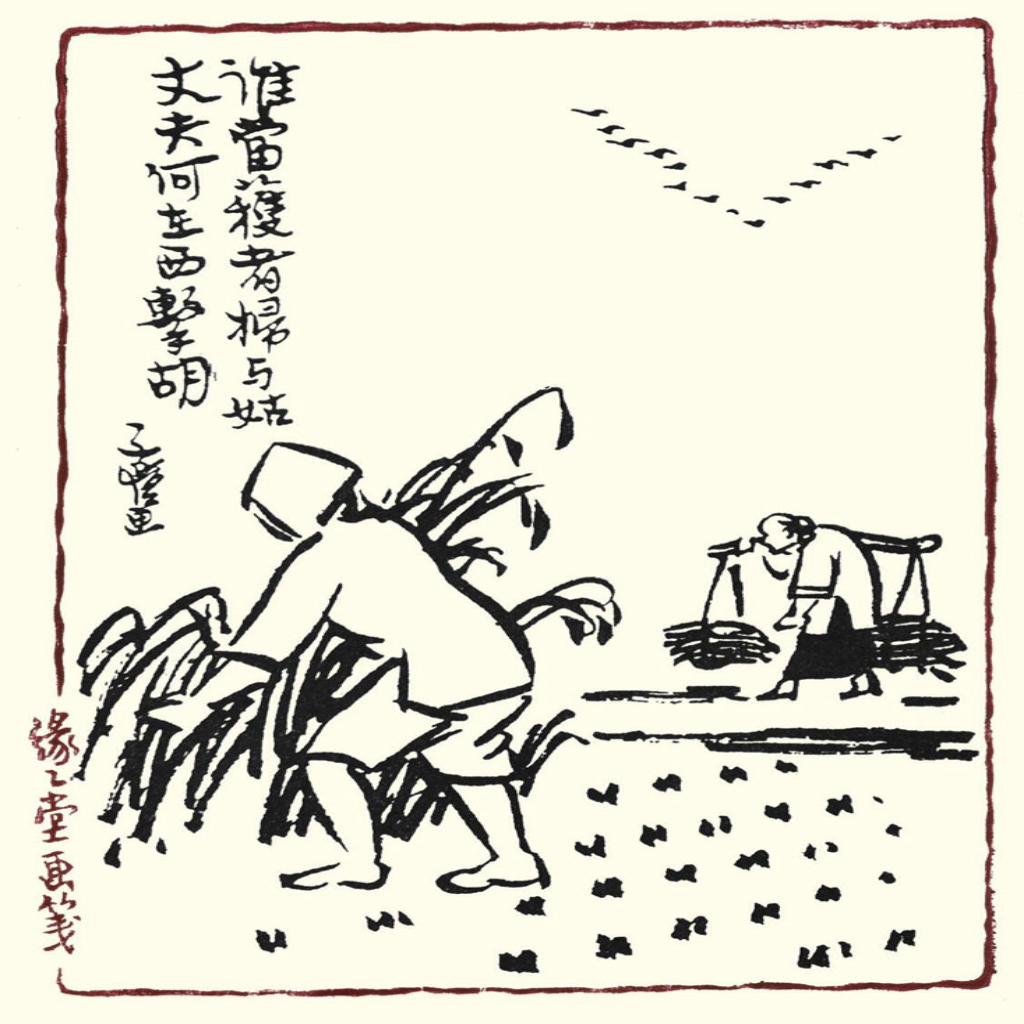 誰當獲者婦与姑
丈夫何在西擊胡
子愷画
緣緣堂画箋